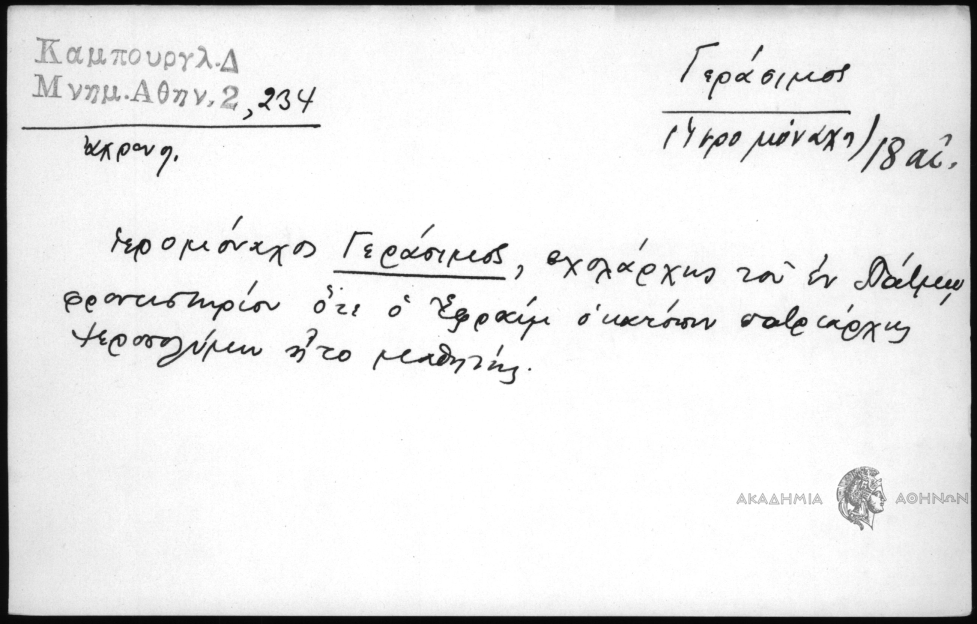 Καμπουργλ.Δ
Μνημ.Αθην.2, 234
ἀχρον.
Γεράσιμος
(ἱερομόναχος) 18 αἰ.
ἱερομόναχος Γεράσιμος, σχολάρχης τοῦ ἐν Πάτμῳ
φροντιστηρίου ὅτε ὁ Ἐφραίμ ὁ κατόπιν πατριάρχης
Ἱεροσολύμων ἦτο μαθητής.
ΑΚΑΔΗΜΙΑ ΑΘΗΝΩΝ